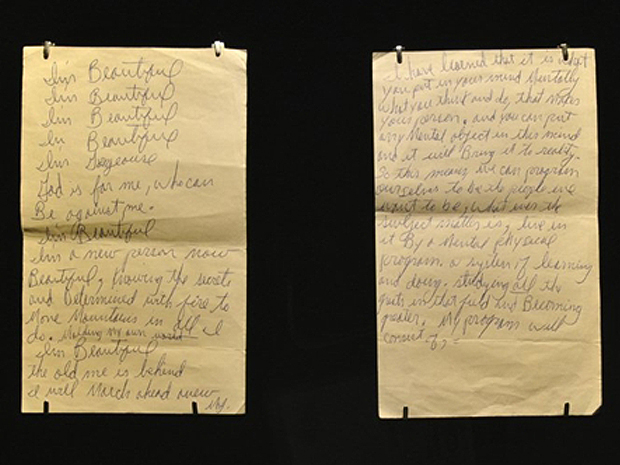 I'm Beautiful
I'm Beautiful
I'm Beautiful
I'm Beautiful
I'm Gogeouse
God is for me, who can
Be against me.
I'm Beautiful
I'm a new person now
Beautiful, knowing the secrets
and Determined with fire to
Move Mountains in all I
do. Molding my own world
I'm Beautiful
the old me is behind
I will March ahead anew
MJ.
I have learned that it is what
you put in your mind Mentally
what you think and do, that makes
your person. and you can put
any Mental object in this mind
and it will Bring it to reality.
So this means we can program
ourselves to be the people we
want to be, what ever the
subject matter is, live in
it By a Mental physical
program. a system of learning
and doing. studying all the
greats in that field and Becoming
greater. My program will
consist of,